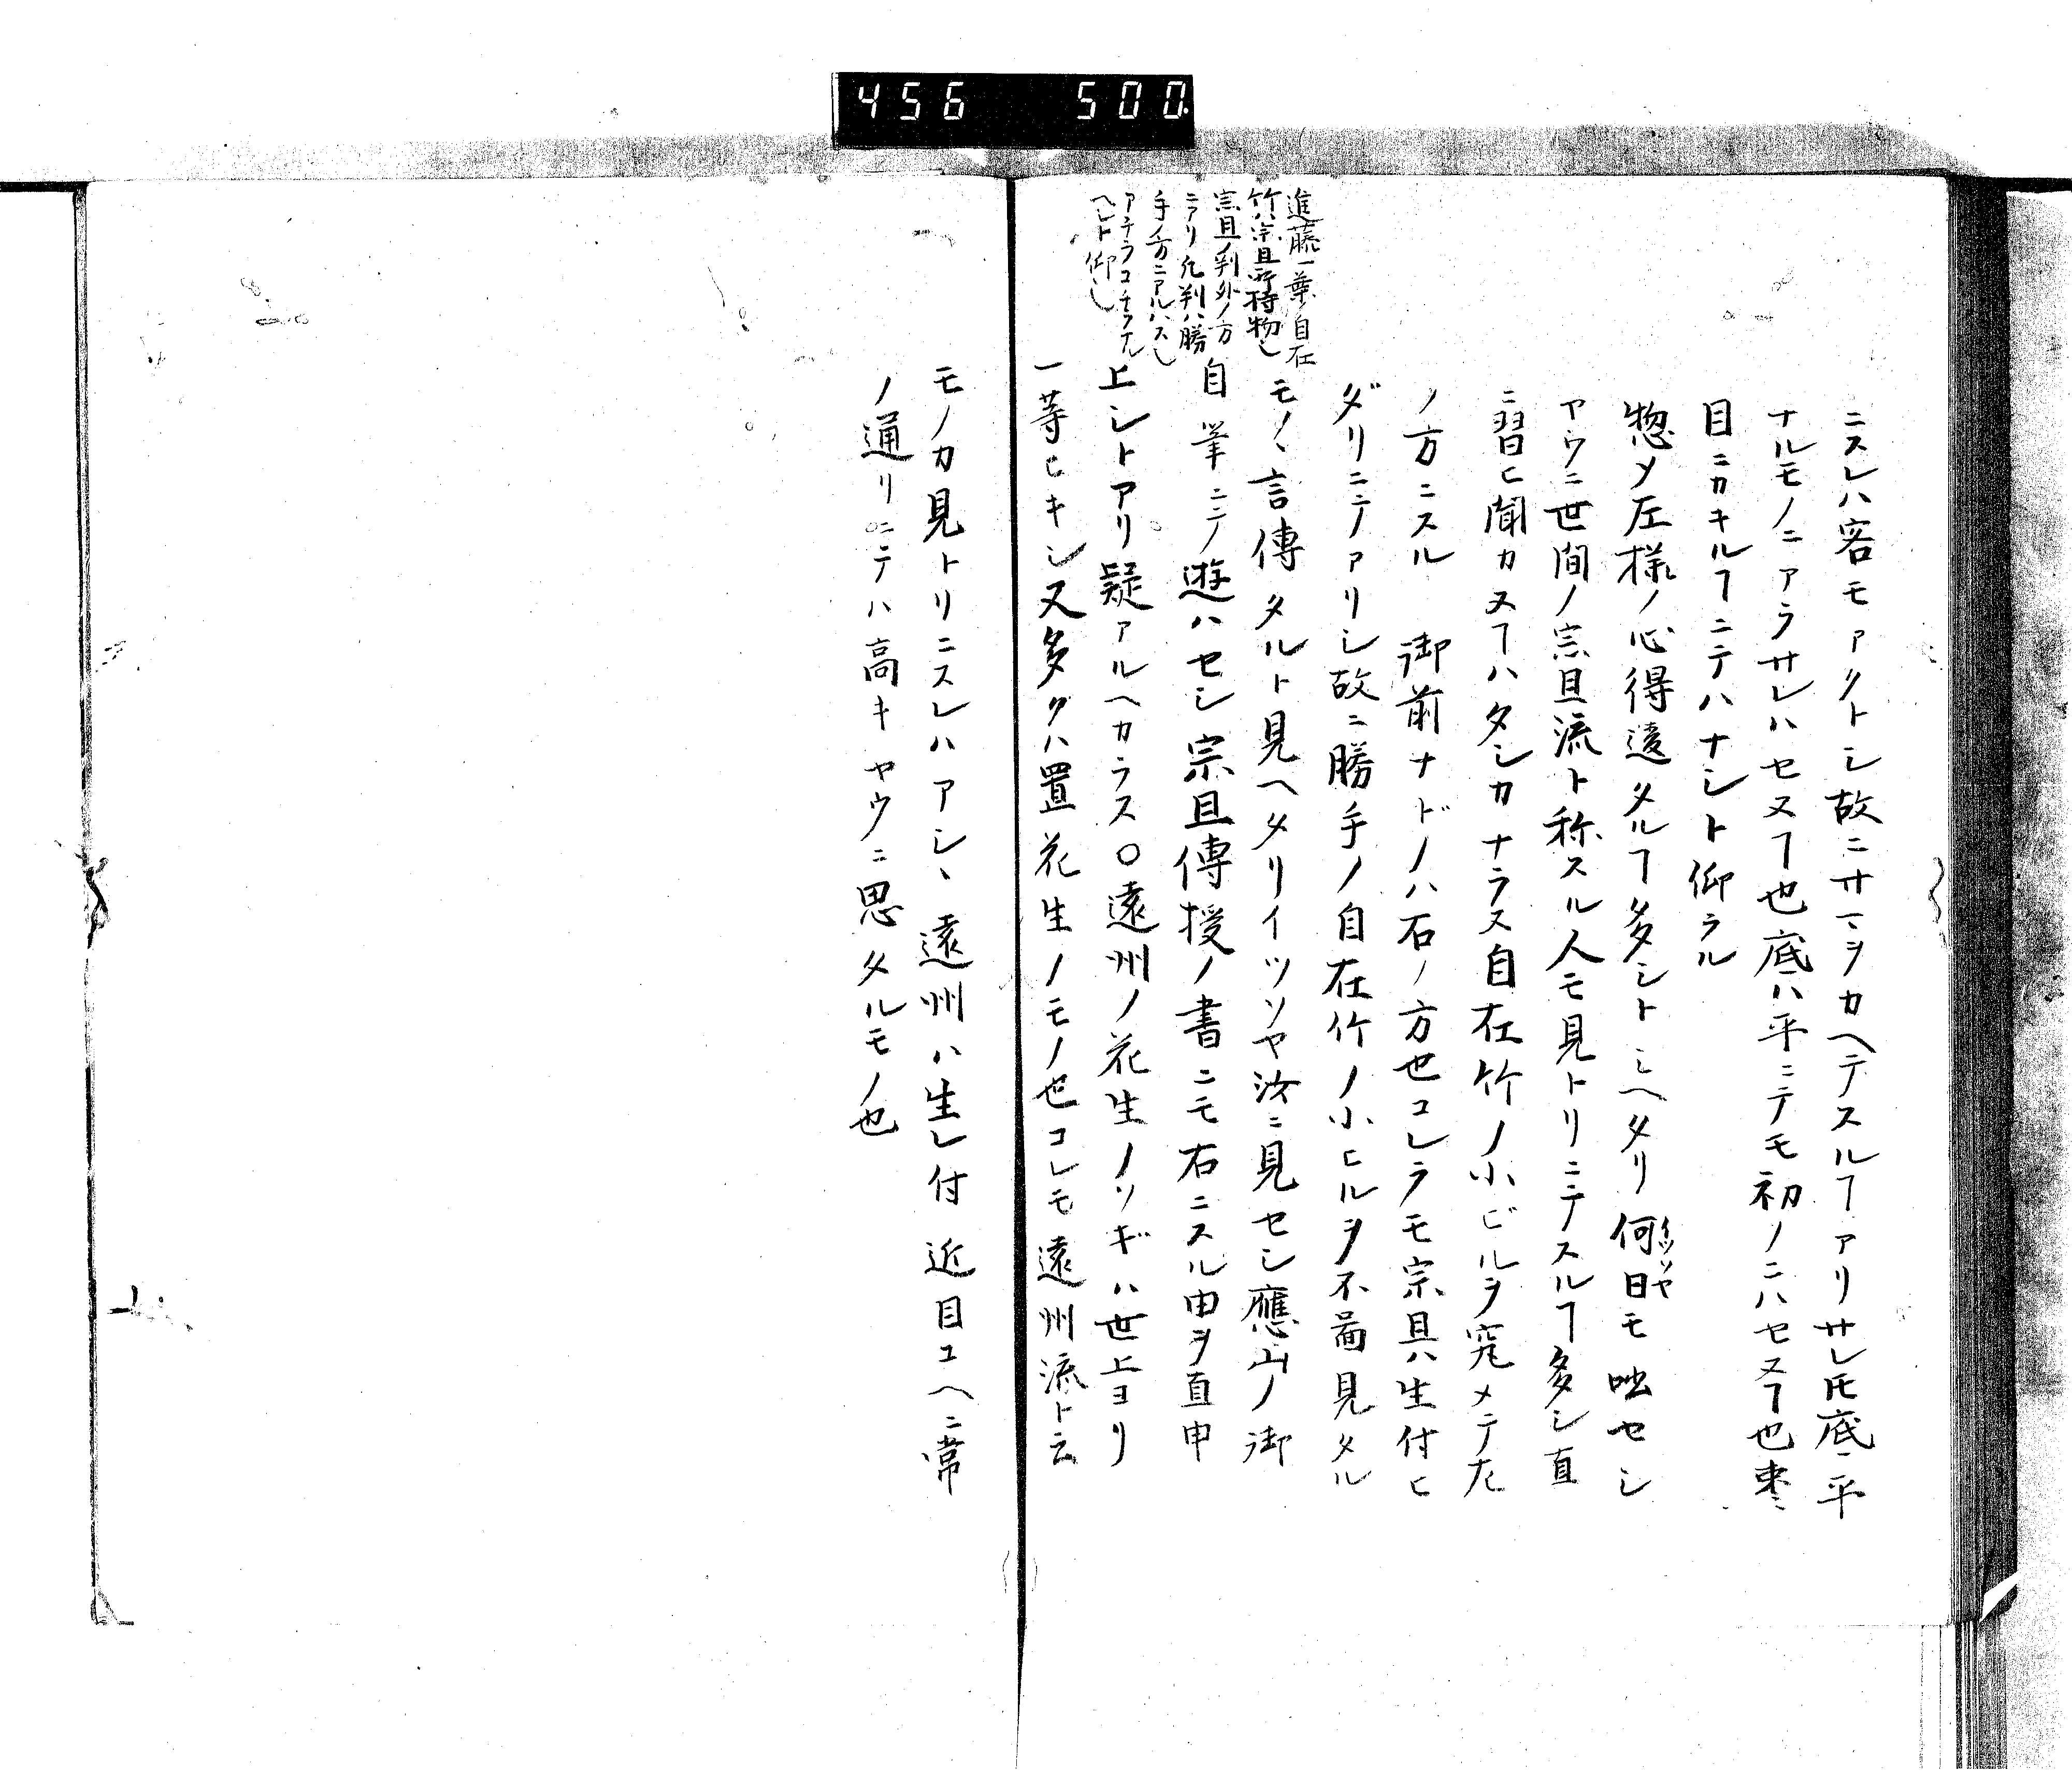 456 500
ニスレハ客モアクトシ故ニサマヲカヘテスルヿアリサレ𪜈底ニ平
ナルモノニアラサレハセヌヿ也底ハ平ニテモ初ノニハセヌヿ也棗ニ
目ニカキルヿニテハナシト仰ラル
惣〆左様ノ心得違タルヿ多シトミヘタリ何日モ咄セシ
イツソヤ
ヤウニ世間ノ宗旦流ト称スル人モ見トリニテスルヿ多シ直
ニ習ヒ聞カヌヿハタシカナラス自在竹ノ小ビルヲ窕メテ左
ノ方ニスル 御前ナドノハ右ノ方也コレラモ宗具ハ生付ヒ
ダリニテアリシ故ニ勝手ノ自在竹ノ小ヒルヲ不啚見タル
モノヽ言傳タルト見ヘタリイツソヤ汝ニ見セシ應山ノ御
自筆ニテ遊ハセシ宗旦傳授ノ書ニモ右ニスル由ヲ直申
上シトアリ疑アルヘカラス○遠州ノ花生ノソギハ世上ヨリ
一等ヒキシ又多クハ置花生ノモノ也コレモ遠州流ト云
進藤一葉ノ自在
竹ハ宗旦所持物也
宗旦ノ判外ノ方
ニアリ凡判ハ勝
手ノ方ニアルハス也
アチラコチラナル
ヘシト仰也
モノカ見トリニスレハアシヽ遠州ハ生レ付近目ユヘニ常
ノ通リニテハ高キヤウニ思タルモノ也